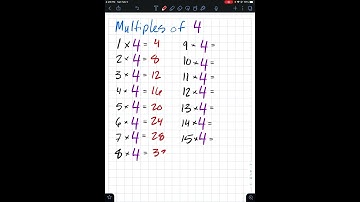 Multiples of 4
1 × 4 = 4
2 × 4 = 8
3 × 4 = 12
4 × 4 = 16
5 × 4 = 20
6 × 4 = 24
7 × 4 = 28
8 × 4 = 3
9 × 4 =
10 × 4 =
11 × 4 =
12 × 4 =
13 × 4 =
14 × 4 =
15 × 4 =